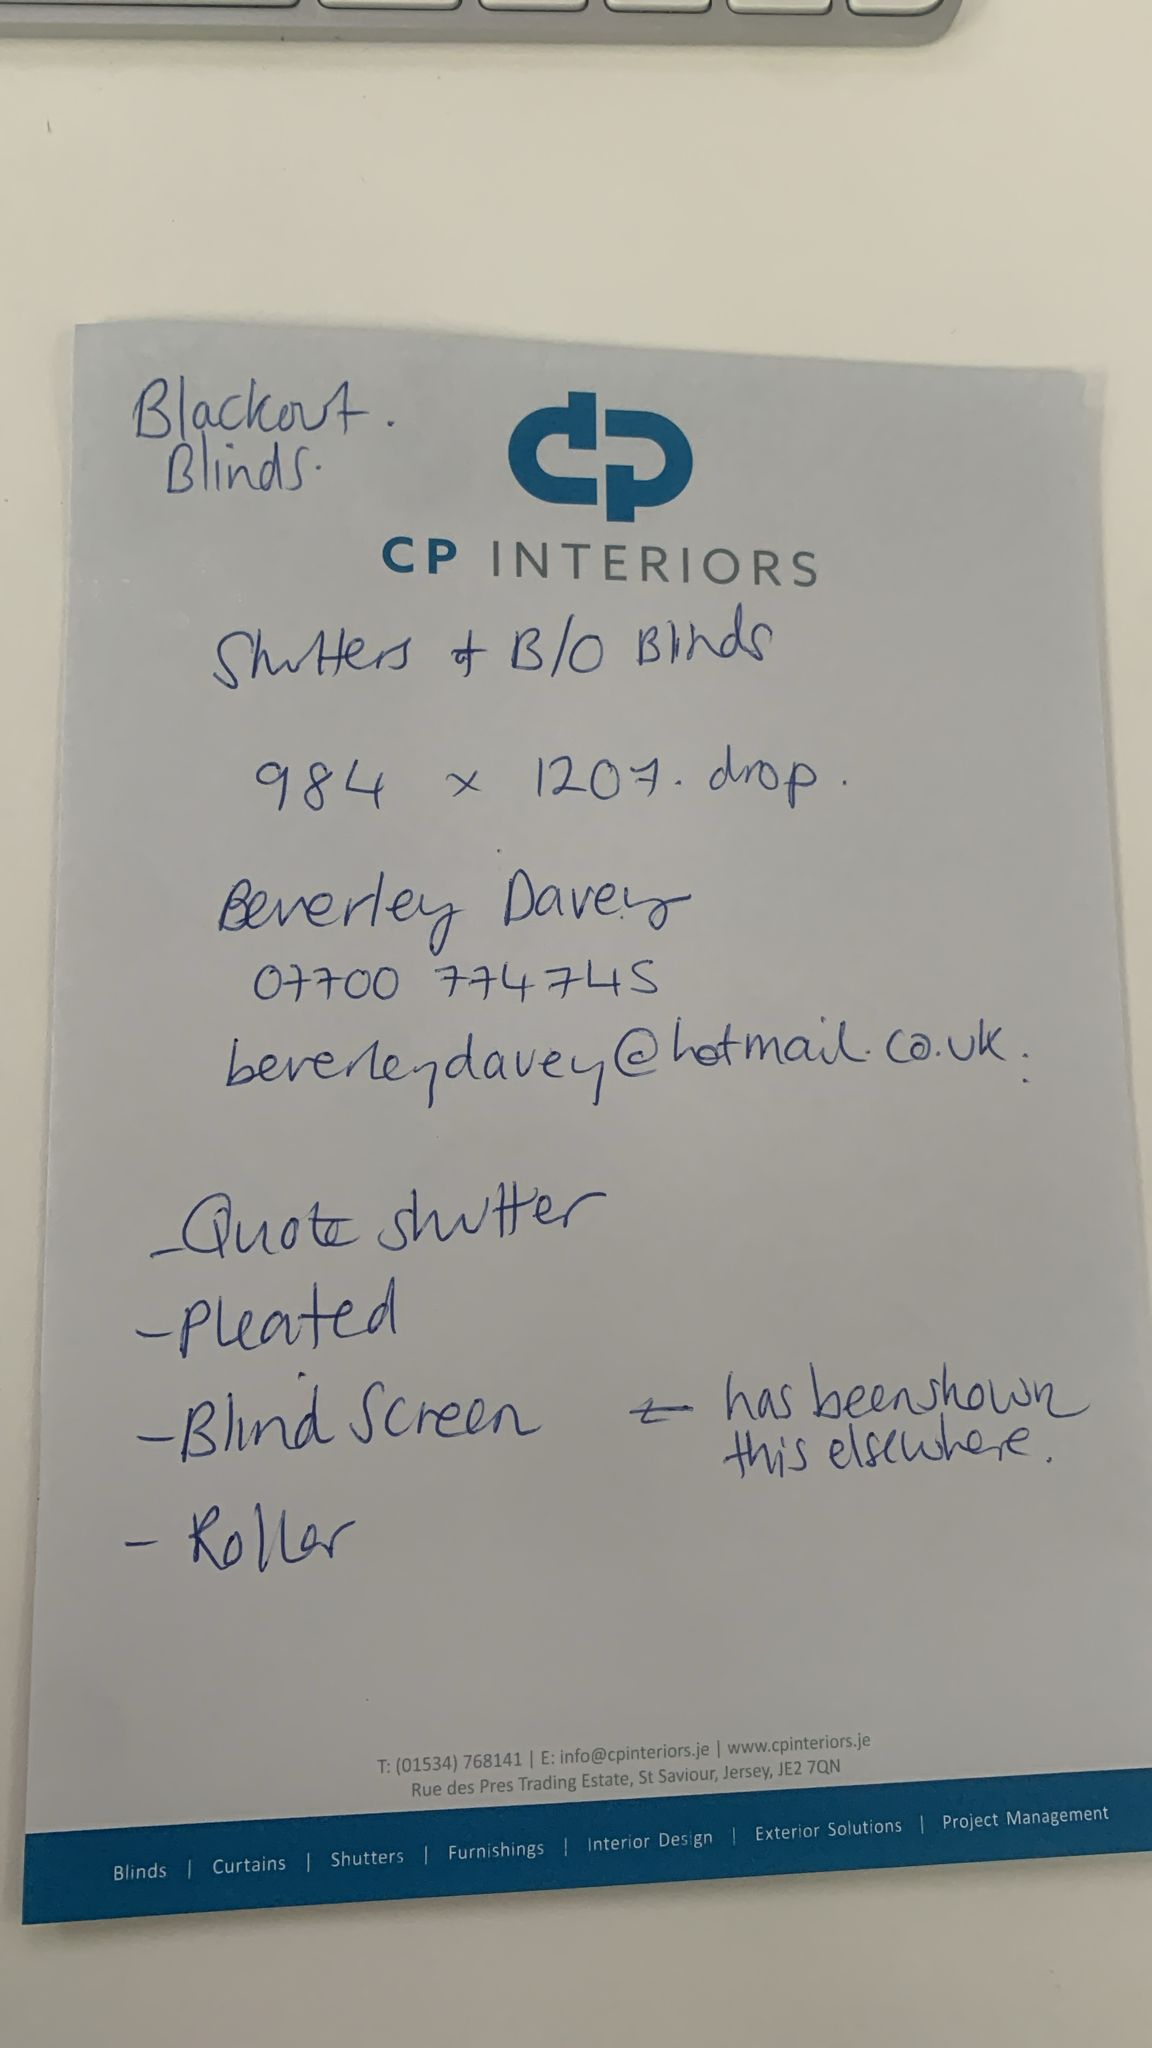 Blackout.
Blinds.
CP INTERIORS
Shutters + B/O Blinds
984 x 1207. drop.
Beverley Davey
07700 774745
beverleydavey@hotmail.co.uk.
- Quote shutter
- Pleated
- Blind Screen ← has been shown
this elsewhere.
- Roller
T: (01534) 768141 | E: info@cpinteriors.je | www.cpinteriors.je
Rue des Pres Trading Estate, St Saviour, Jersey, JE2 7QN
Blinds | Curtains | Shutters | Furnishings | Interior Design | Exterior Solutions | Project Management